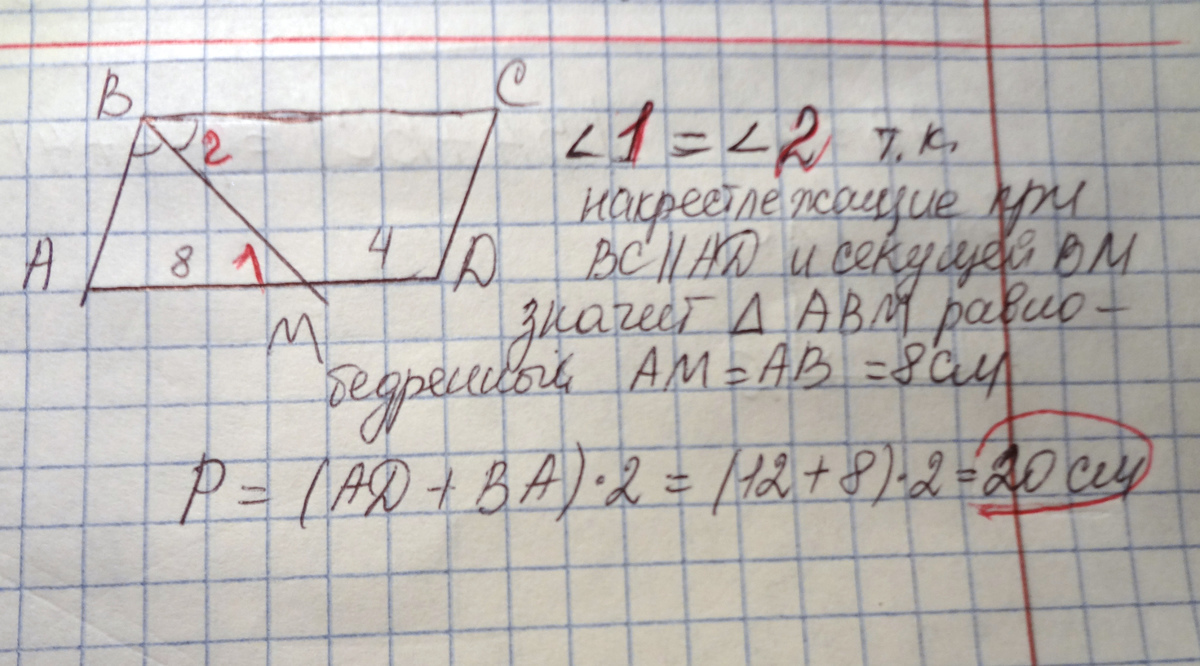 B
C
2
A
8
1
4
D
M
<1 = <2 т.к.
накрестлежащие при
BC||AD и секущей BM
значит Δ ABM равно-
бедренный AM = AB = 8см
P = (AD + BA)·2 = (12+8)·2 = 20 см